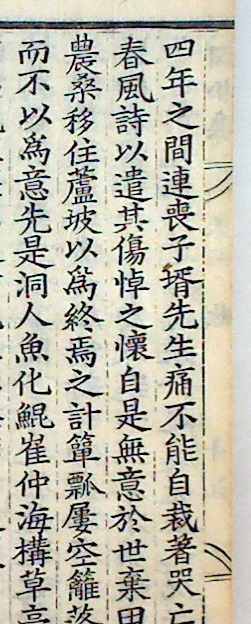 四年之間連喪子壻先生痛不能自裁著哭亡
春風詩以遣其傷悼之懷自是無意於世棄田
農桑移住蘆坡以爲終焉之計簞瓢屢空籬落
而不以爲意先是洞人魚化鯤崔仲海構草亭